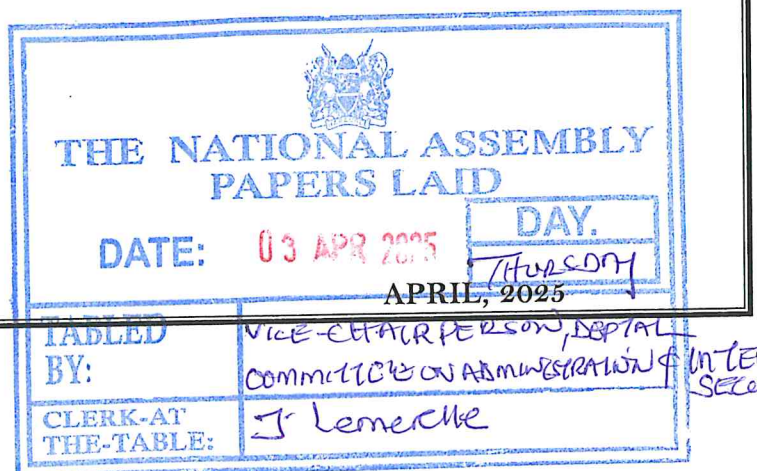 THE NATIONAL ASSEMBLY
PAPERS LAID
DATE: 03 APR 2025
DAY.
THURSDAY
APRIL, 2025
TABLED BY:
VICE-CHAIRPERSON, DEPTAL
COMMITTEE ON ADMINISTRATION &
CLERK-AT THE-TABLE:
J Lemerelle